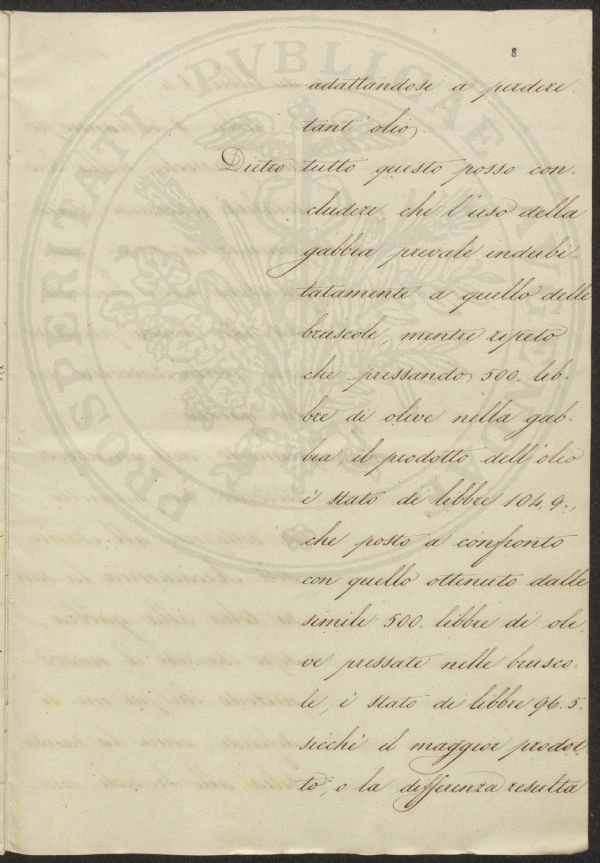 8
adattandosi a perdere
tant' olio.
Dietro tutto questo posso con-
cludere, che l'uso della
gabbia prevale indubi-
tatamente a quello delle
bruscole, mentre ripeto
che pressando 500. lib-
bre di olive nella gab-
bia il prodotto dell'olio
è stato di libbre 104.9.,
che posto a confronto
con quello ottenuto dalle
simili 500. libbre di oli-
ve pressate nelle brusco-
le, è stato di libbre 96.5.
sicchè il maggior prodot
to, o la differenza resulta
PROSPERITATI PVBLICAE AVGENDAE